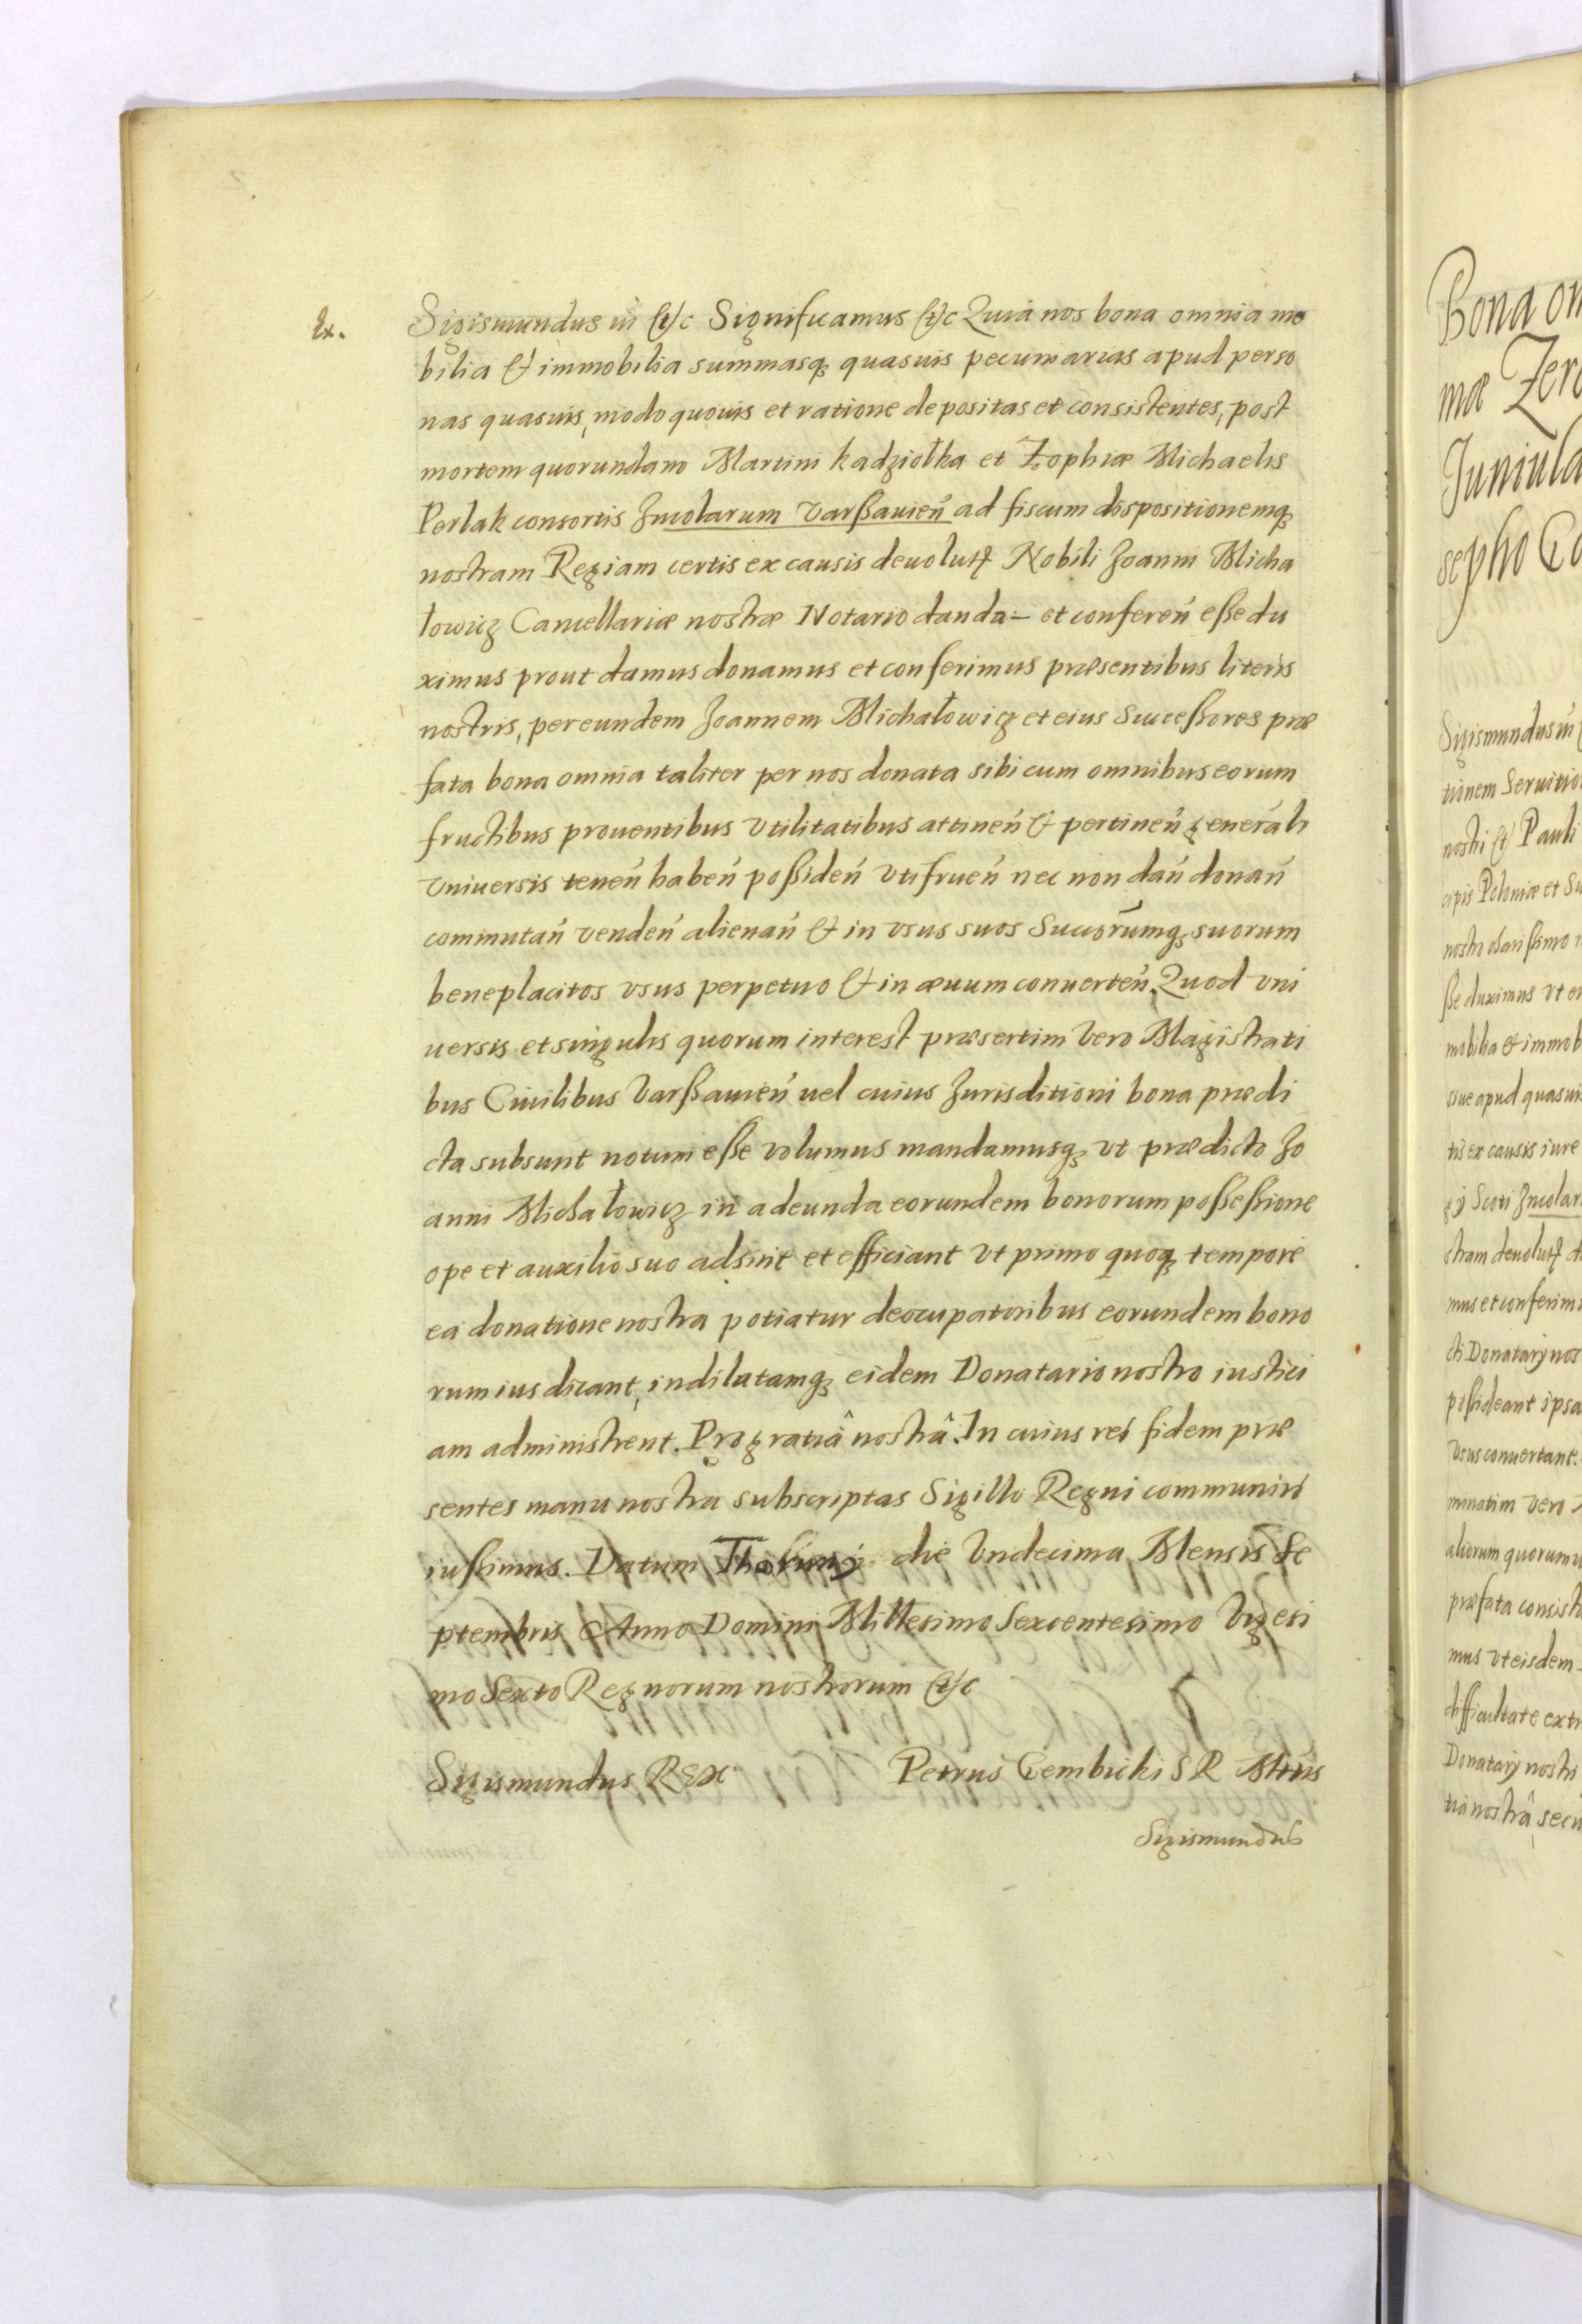 Ex.
Sigismundus iij (et)c Significamus (et)c Quia nos bona omnia mo
bilia & immobilia summasq quasuis pecuniarias apud perso
nas quasuis, modo quouis et ratione depositas et consistentes, post
mortem quorundam Martini Kadziołka et Zophiæ Michaelis
Perlak consortis Incolarum Varßauień ad fiscum dispositionemq
nostram Regiam certis ex causis deuolut Nobili Joanni Micha
łowicz Cancellariæ nostræ Notario danda et confereń eße du
ximus prout damus donamus et conferimus præsentibus literis
nostris, per eundem Joannem Michałowicz et eius Succeßores præ
fata bona omnia taliter per nos donata sibi cum omnibus eorum
fructibus prouentibus vtilitatibus attineń & pertineń generali
vniuersis teneń habeń poßideń vtifrueń nec non dań donań
commutań vendeń alienań & in vsus suos Succorumq suorum
beneplacitos vsus perpetuo & in æuum conuerteń. Quod vni
uersis et singulis quorum interest præsertim vero Magistrati
bus Ciuilibus Varßauień uel cuius Jurisditioni bona prædi
cta subsunt notum eße volumus mandamusq vt prædicto Jo
anni Michałowicz in adeunda eorundem bonorum poßeßione
ope et auxilio suo adsint et efficiant vt primo quoq tempore
ea donatione nostra potiatur de occupatoribus eorundem bono
rum ius dicant, indilatamq eidem Donatario nostro iustici
am administrent. Pro gratiâ nostrâ. In cuius rei fidem præ
sentes manu nostra subscriptas Sigillo Regni communiri
iußimus. Datum Thorunij die Vndecima Mensis Se
ptembris Anno Domini Millesimo Sexcentesimo Vigesi
mo Sexto Regnorum nostrorum (et)c
Sigismundus Rex Petrus Gembicki S R Mtis
Sigismundus
Bona om
mæ Zero
Juniula
sepho Co
Sigismundus iij
tionem Seruitio
nostri (et) Pauli
cipis Poloniæ et Su
nostro charißimo
ße duximus vt
mobilia & immob
siue apud quasuis
tis ex causis iure
gij Scoti Incolar
stram deuolut
mus et conferim
cti Donatarij nos
poßideant ipsa
vsus conuertant.
minatim vero
aliorum quorumu
præfata consist
mus vt eisdem
difficultate extr
Donatarij nostri
tia nostrâ secu